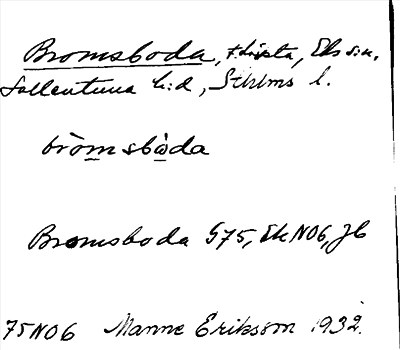 Bromsboda, t. lixta, Eds s:n,
Sollentuna h:d, Sthlms l.
bròmsbòda
Bromsboda G75, Ek NO6, Jb
75NO6 Manne Eriksson 1932.